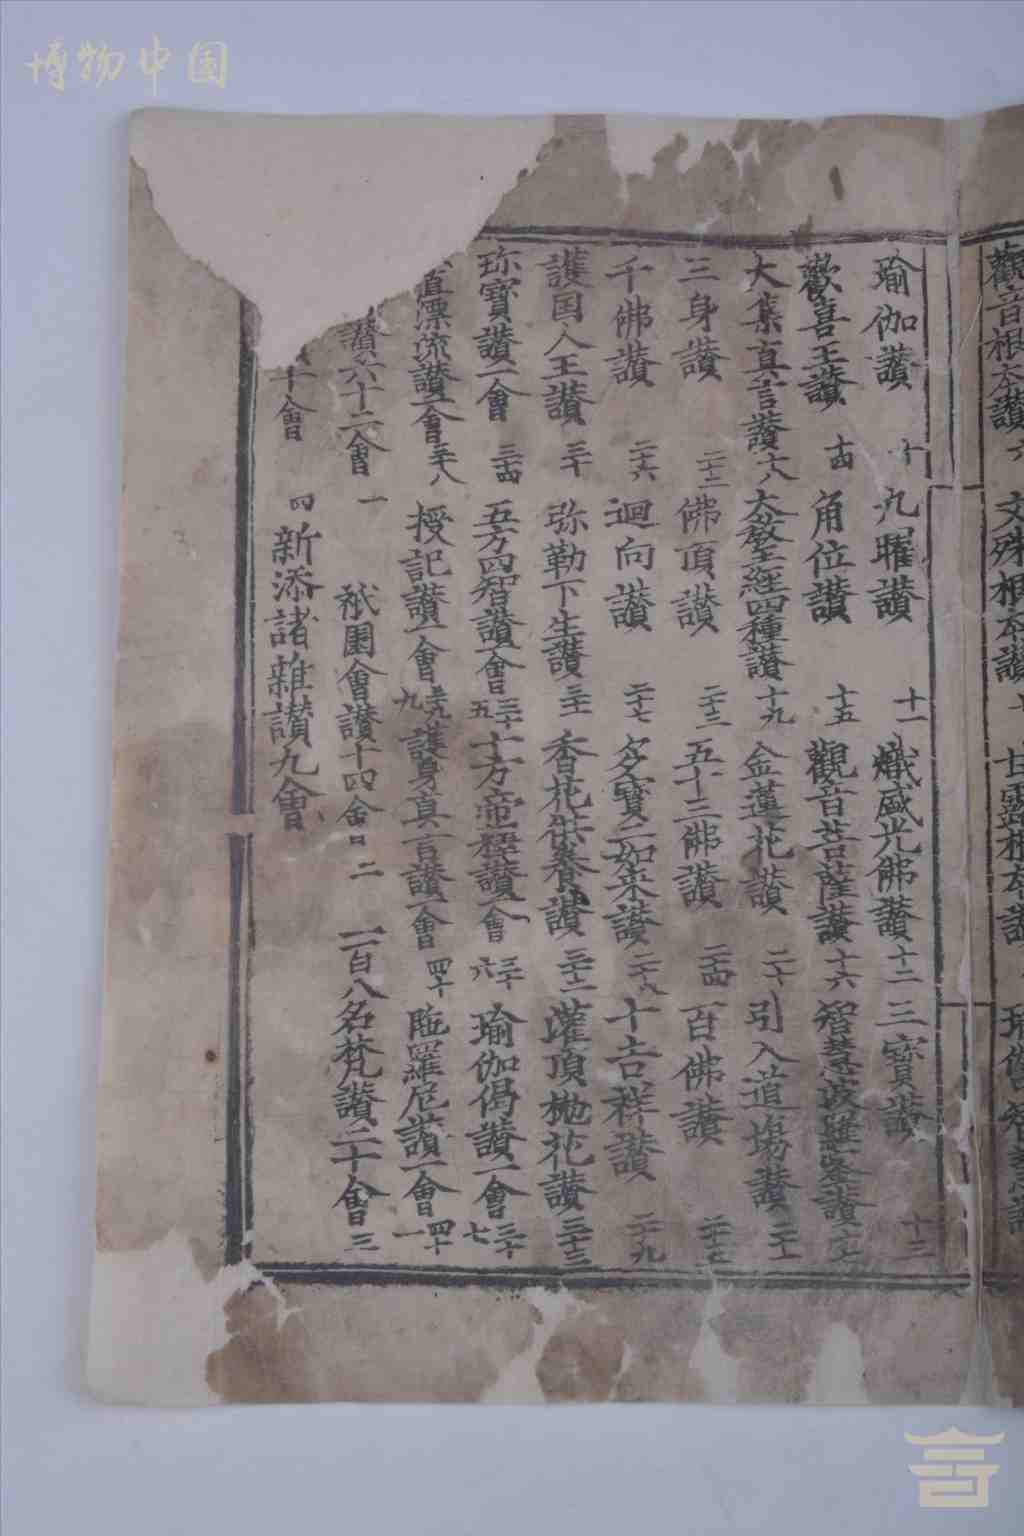 博物中国
觀音根本讚 六 文殊根本讚 七 甘露根本讚
瑜伽讚 十 九曜讚 十一 熾盛光佛讚 十二 三寶讚 十三
歡喜王讚 十四 角位讚 十五 觀音菩薩讚 十六 智慧波羅蜜讚 十七
大集真言讚 十八 大教聖經四種讚 十九 金蓮花讚 二十 引入道場讚 二十一
三身讚 二十二 佛頂讚 二十三 五十三佛讚 二十四 百佛讚 二十五
千佛讚 二十六 迴向讚 二十七 多寶二如來讚 二十八 十吉祥讚 二十九
護国人王讚 三十 弥勒下生讚 三十一 香花供養讚 三十二 灌頂拋花讚 三十三
珎寶讚一會 三十四 五方四智讚一會 三十五 十方帝釋讚一會 三十六 瑜伽偈讚一會 三十七
漂流讚一會 三十八 授記讚一會 三十九 護身真言讚一會 四十 陁羅尼讚一會 四十一
讚六十二會 一 祇園會讚十四會 二 一百八名梵讚二十會 三
十會 四 新添諸雜讚九會